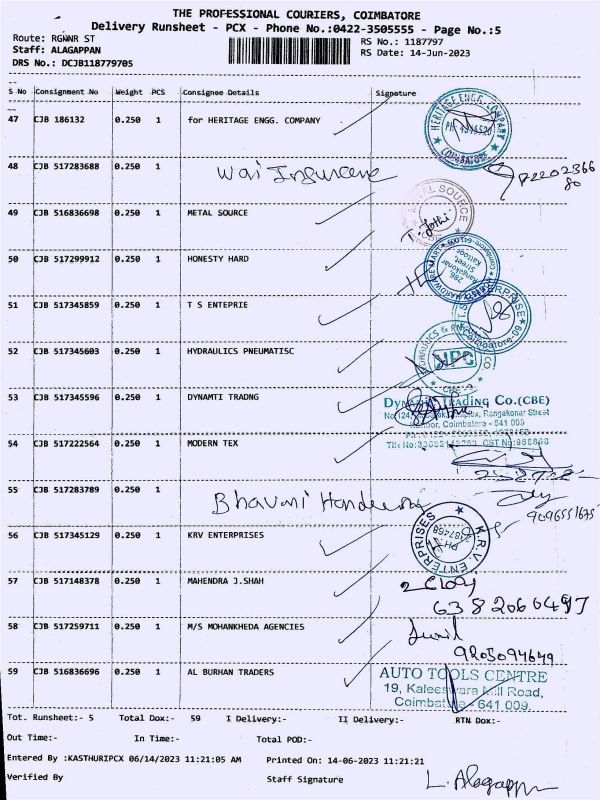 THE PROFESSIONAL COURIERS, COIMBATORE
Delivery Runsheet - PCX - Phone No.:0422-3505555 - Page No.:5
Route: RGNNR ST
RS No.: 1187797
Staff: ALAGAPPAN
RS Date: 14-Jun-2023
DRS No.: DCJB118779705
S No Consignment No Weight PCS Consignee Details Signature
47 CJB 186132 0.250 1 for HERITAGE ENGG. COMPANY
HERITAGE ENGG. COMPANY
COIMBATORE
48 CJB 517283688 0.250 1
49 CJB 516836698 0.250 1 METAL SOURCE
METAL SOURCE
T. Jothi
50 CJB 517299912 0.250 1 HONESTY HARD
286
Rangakonar
Street,
Kattoor,
51 CJB 517345859 0.250 1 T S ENTEPRIE
52 CJB 517345603 0.250 1 HYDRAULICS PNEUMATISC
HPC
53 CJB 517345596 0.250 1 DYNAMTI TRADNG
Trading Co.(CBE)
Rangakonar Street
Coimbatore - 641 009
54 CJB 517222564 0.250 1 MODERN TEX
55 CJB 517283789 0.250 1
Bhavani
9096551675
56 CJB 517345129 0.250 1 KRV ENTERPRISES
K.R.V. ENTERPRISES
57 CJB 517148378 0.250 1 MAHENDRA J.SHAH
6382060497
58 CJB 517259711 0.250 1 M/S MOHANKHEDA AGENCIES
Sunil
9205094649
59 CJB 516836696 0.250 1 AL BURHAN TRADERS
AUTO TOOLS CENTRE
19, Kaleeswara Mill Road,
Coimbatore - 641 009.
Tot. Runsheet:- 5 Total Dox:- 59 I Delivery:- II Delivery:- RTN Dox:-
Out Time:- In Time:- Total POD:-
Entered By :KASTHURIPCX 06/14/2023 11:21:05 AM Printed On: 14-06-2023 11:21:21
Verified By Staff Signature
L. Alagappan